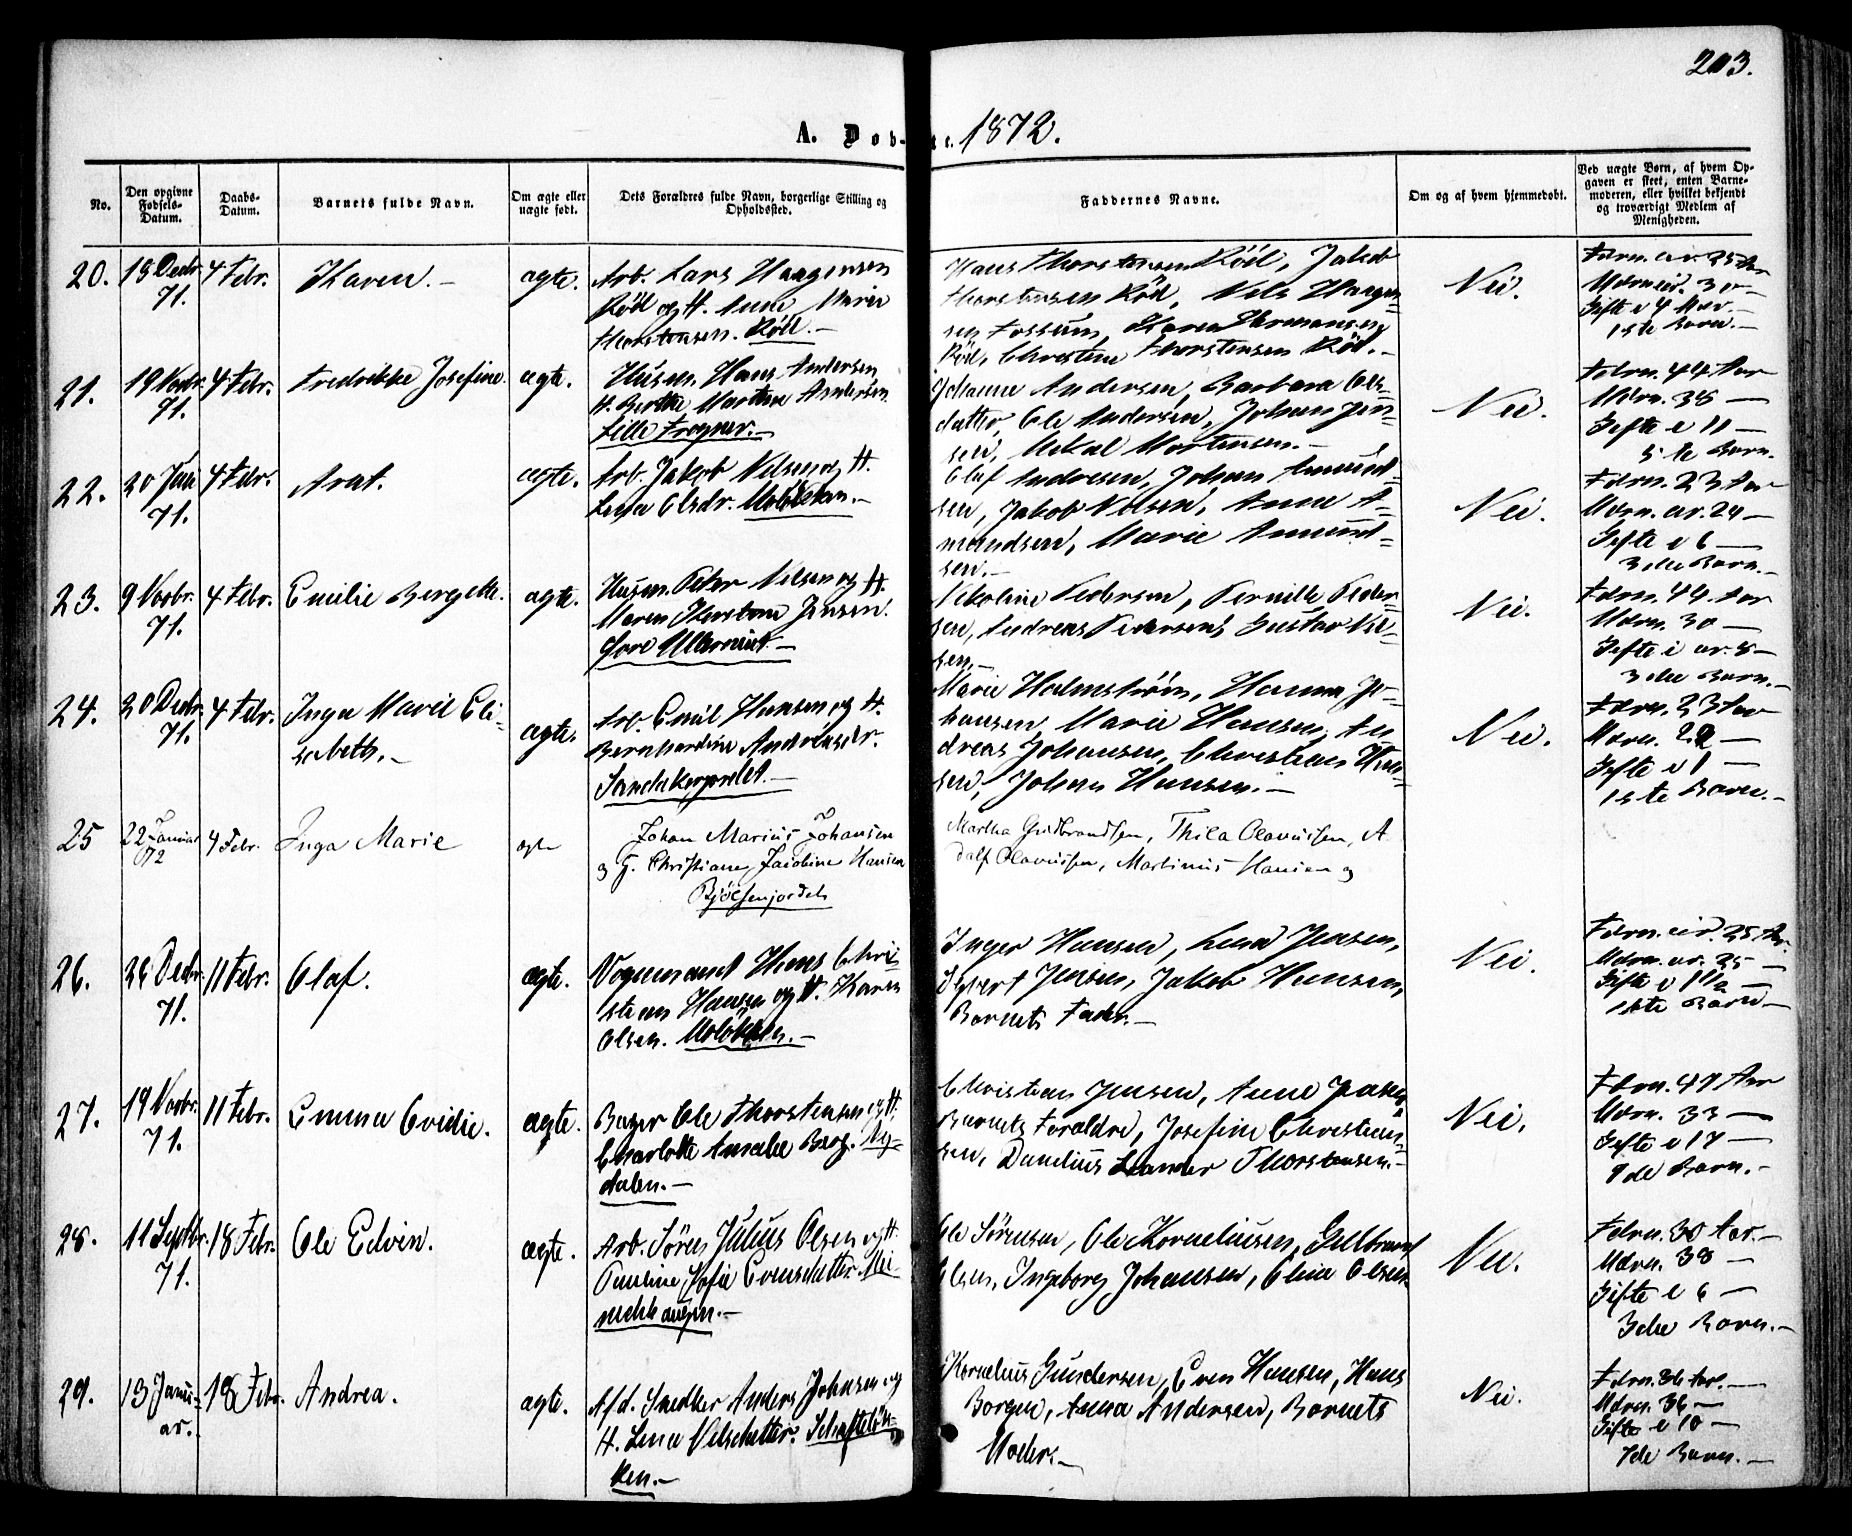 203.
A. Døb- te. 1872.
No.
Den opgivne Fødsels-Datum.
Daabs-Datum.
Barnets fulde Navn.
Om ægte eller uægte født.
Dets Forældres fulde Navn, borgerlige Stilling og Opholdssted.
Faddernes Navne.
Om og af hvem hjemmedøbt.
Ved uægte Børn, af hvem Opgaven er skeet, enten Barnemoderen, eller hvilket bekjendt og troværdigt Medlem af Menigheden.
20. 18 Decbr. 71. 4 Febr. Karen. – ægte.
Arb. Lars Haagensen
Röd og H. Anne Marie
Thorstensen. Röd. –
Hans Thorstensen Röd, Jakob
Thorstensen Röd, Nels Haagen=
sen Fossum, Karen Hermansen
Röd, Christine Thorstensen Röd. –
Nei.
Fdrn. cir. 25 Aar
Mdrn cir. 30 –
Gifte i 4 Aar. –
1ste Barn. –
21. 19 Novbr. 71. 4 Febr. Fredrikke Josefine. ægte.
Husm. Hans Andersen
H. Berthe Marthea Andersen
Lille Frogner. –
Johanne Andersen, Barbara Ols=
datter, Ole Andersen, Johan Jen=
sen, Mikal Mortensen. –
Nei.
Fdrn. 44 Aar
Mdrn. 38 –
Gifte i 11 –
5te Barn.
22. 20 Juli 71. 4 Febr. ægte.
Arb. Jakob Nelsen og H.
Lena Olsdr.
Olaf Andresen, Johan Amund=
sen, Jakob Nelsen, Anne A=
mundsen, Marie Amund=
sen. –
Nei.
Fdrn. 23 Aar
Mdrn. cir. 24 –
Gifte i 6 –
3die Barn. –
23. 9 Novbr. 71. 4 Febr. Emilie Bergette. ægte.
Husm. Peter Nelsen og H.
Maren Kerstine Jensen.
Nikoline Pedersen, Pernille Peder=
sen, Andreas Pedersen, Gustav Nel=
sen. –
Nei.
Fdrn. 44. Aar
Mdrn. 30 –
Gifte i cir. 8 –
3die Barn. –
24. 20 Decbr. 71. 4 Febr. Inga Marie Eli=
sabeth. –
ægte.
Arb. Emil Hansen og H.
Bernhardine Andreasdr.
Sandakerjordet. –
Marie Holmström, Hanna Jo=
hansen, Marie Hansen, An
dreas Johansen, Christian Han=
sen, Johan Hansen. –
Nei.
Fdrn. 23 Aar
Mdrn. 22 –
Gifte i 1 –
1ste Barn. –
25 22 Januar 72 4 Febr. Inga Marie ægte
Johan Marius Johansen
og H. Christiane Jacobine Hansen
Bjölsenjordet
Martha Gudbrandsen, Thila Olavussen, A
dolf Olavussen, Martinus Hansen og
26. 26 Decbr. 71. 11 Febr. Olaf. ægte.
Vognmand Hans Chri=
stian Hansen og H. Karen
Olsen. Molökken. –
Inger Hansen, Lena Jensen,
Jensen, Jakob Hansen,
Barnets Fader. –
Nei.
Fdrn. cir. 25 Aar.
Mdrn. cir. 25 –
Gifte i 1 1/2 –
1ste Barn –
27. 19 Novbr. 71. 11 Febr. Emma Ovidie. ægte.
Bager Ole Thorstensen og H.
Charlotte Amalie Berg. Ny=
dalen. –
Christian Jensen, Anne Jensen
Barnets Forældre, Josefine Christian=
sen, Danelius Leander Thorstensen. –
Nei.
Fdrn. 47 Aar
Mdrn. 33 –
Gifte i 17 –
9de Barn. –
28. 11 Septbr. 71. 18 Febr. Ole Edvin. ægte.
Arb. Sören Julius Olsen og H.
Pauline Sofie Evensdatter. Mei
nichhaugen. –
Ole Sörensen, Ole Korneliusen, Gulbrand
Olsen, Ingeborg Johansen, Olina Olsen
Nei.
Fdrn. 30 Aar. –
Mdrn. 38 –
Gifte i 6 –
3die Barn. –
29. 13 Janu=
ar. 18 Febr. Andrea. ægte.
Afd. Snedker Anders Johnsen og
H. Lena Nelsdatter. Schaftelök=
ken. –
Kornelius Gundersen, Even Hansen, Hans
Borgen, Anna Andersen, Barnets
Moder. –
Nei.
Fdrn. 36 Aar. –
Mdrn. 36 –
Gifte i 10 –
7de Barn. –